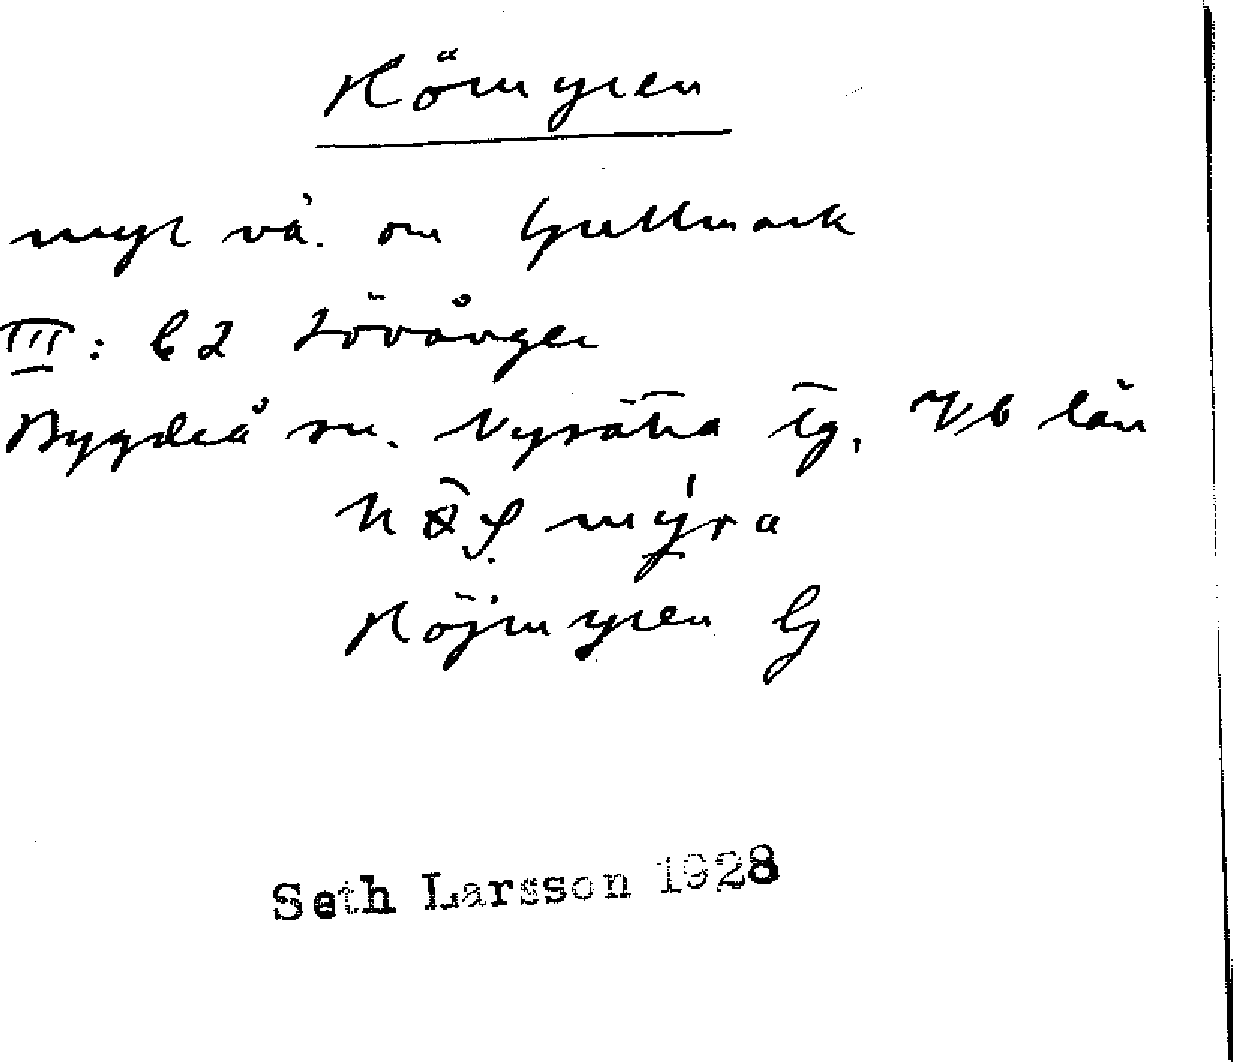 Kömyren
myr vä. om Gullmark
III: C2 Lövånger
Bygdeå sn. Nysätra tg, Vb län
myra
Köjmyren G
Seth Larsson 1928